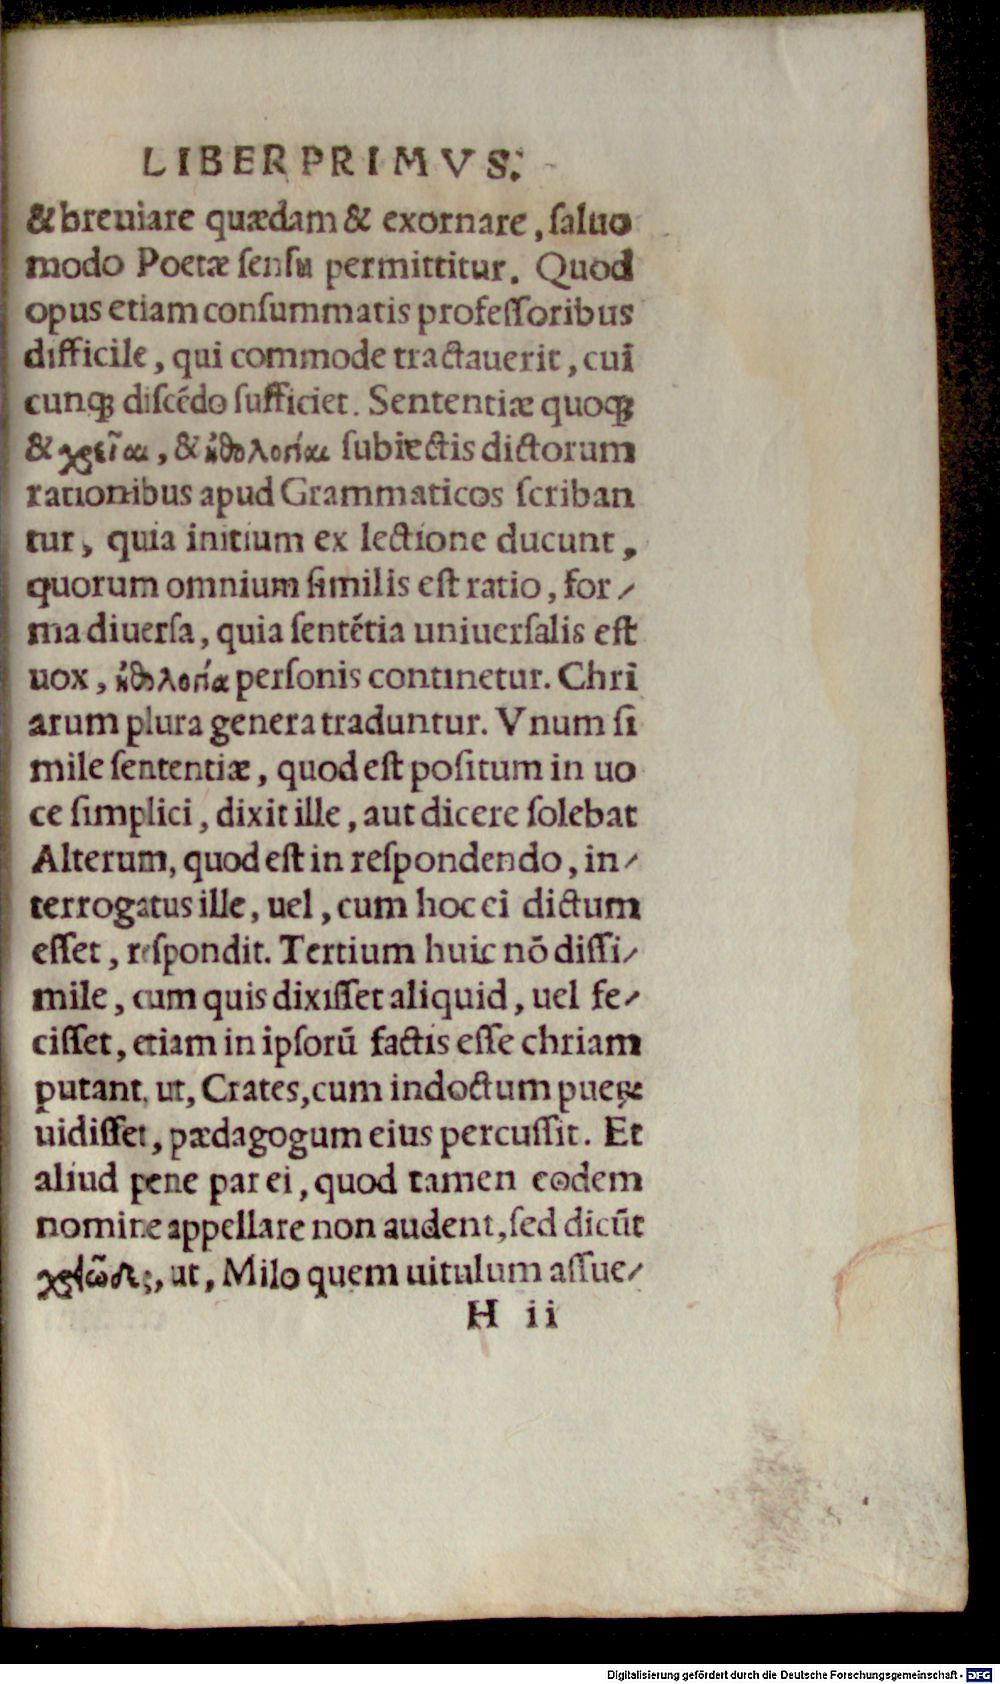 LIBER PRIMVS.
& breuiare quædam & exornare, ſaluo
modo Poetæ ſenſu permittitur. Quod
opus etiam conſummatis profeſſoribus
difficile, qui commode tractauerit, cui
cunqꝫ diſcẽdo ſufficiet. Sententiæ quoqꝫ
& χρεῖαι, & ἠθολογίαι ſubiectis dictorum
rationibus apud Grammaticos ſcriban
tur, quia initium ex lectione ducunt,
quorum omnium ſimilis eſt ratio, for⸗
ma diuerſa, quia ſentẽtia uniuerſalis eſt
uox, ἠθολογία perſonis continetur. Chri
arum plura genera traduntur. Vnum ſi
mile ſententiæ, quod eſt poſitum in uo
ce ſimplici, dixit ille, aut dicere ſolebat
Alterum, quod eſt in reſpondendo, in⸗
terrogatus ille, uel, cum hoc ei dictum
eſſet, reſpondit. Tertium huic nõ diſſi⸗
mile, cum quis dixiſſet aliquid, uel fe⸗
ciſſet, etiam in ipſorũ factis eſſe chriam
putant, ut, Crates, cum indoctum pueꝝ
uidiſſet, pædagogum eius percuſſit. Et
aliud pene par ei, quod tamen eodem
nomine appellare non audent, ſed dicũt
χρειῶδες, ut, Milo quem uitulum aſſue⸗
H ii
Digitalisierung gefördert durch die Deutsche Forschungsgemeinschaft - DFG